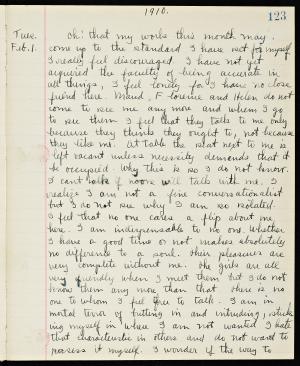 1910.
123
Tues.
Feb. 1.
Oh! that my works this month may
come up to the standard I have set for myself
I really feel discouraged. I have not yet
acquired the faculty of being accurate in
all things, I feel lonely for I have no close
friend here. Maud, Florence and Helen do not
come to see me any more and when I go
to see them I feel that they talk to me only
because they think they ought to, not because
they like me. At table the seat next to me is
left vacant unless necessity demands that it
be occupied. Why this is so I do not know.
I cant talk if no one will talk with me. I
realize I am not a fine conversationalist
but I do not see why I am so isolated.
I feel that no one cares a flip about me
here. I am indispensable to no one. Whether
I have a good time or not makes absolutely
no difference to a soul. Their pleasures are
very complete without me. The girls are all
very friendly when I meet them but I do not
know them any more than that. There is no
one to whom I feel free to talk. I am in
mortal terror of butting in and intruding, stick-
ing myself in where I am not wanted. I hate
that characteristic in others and do not want to
possess it myself. I wonder if the way to